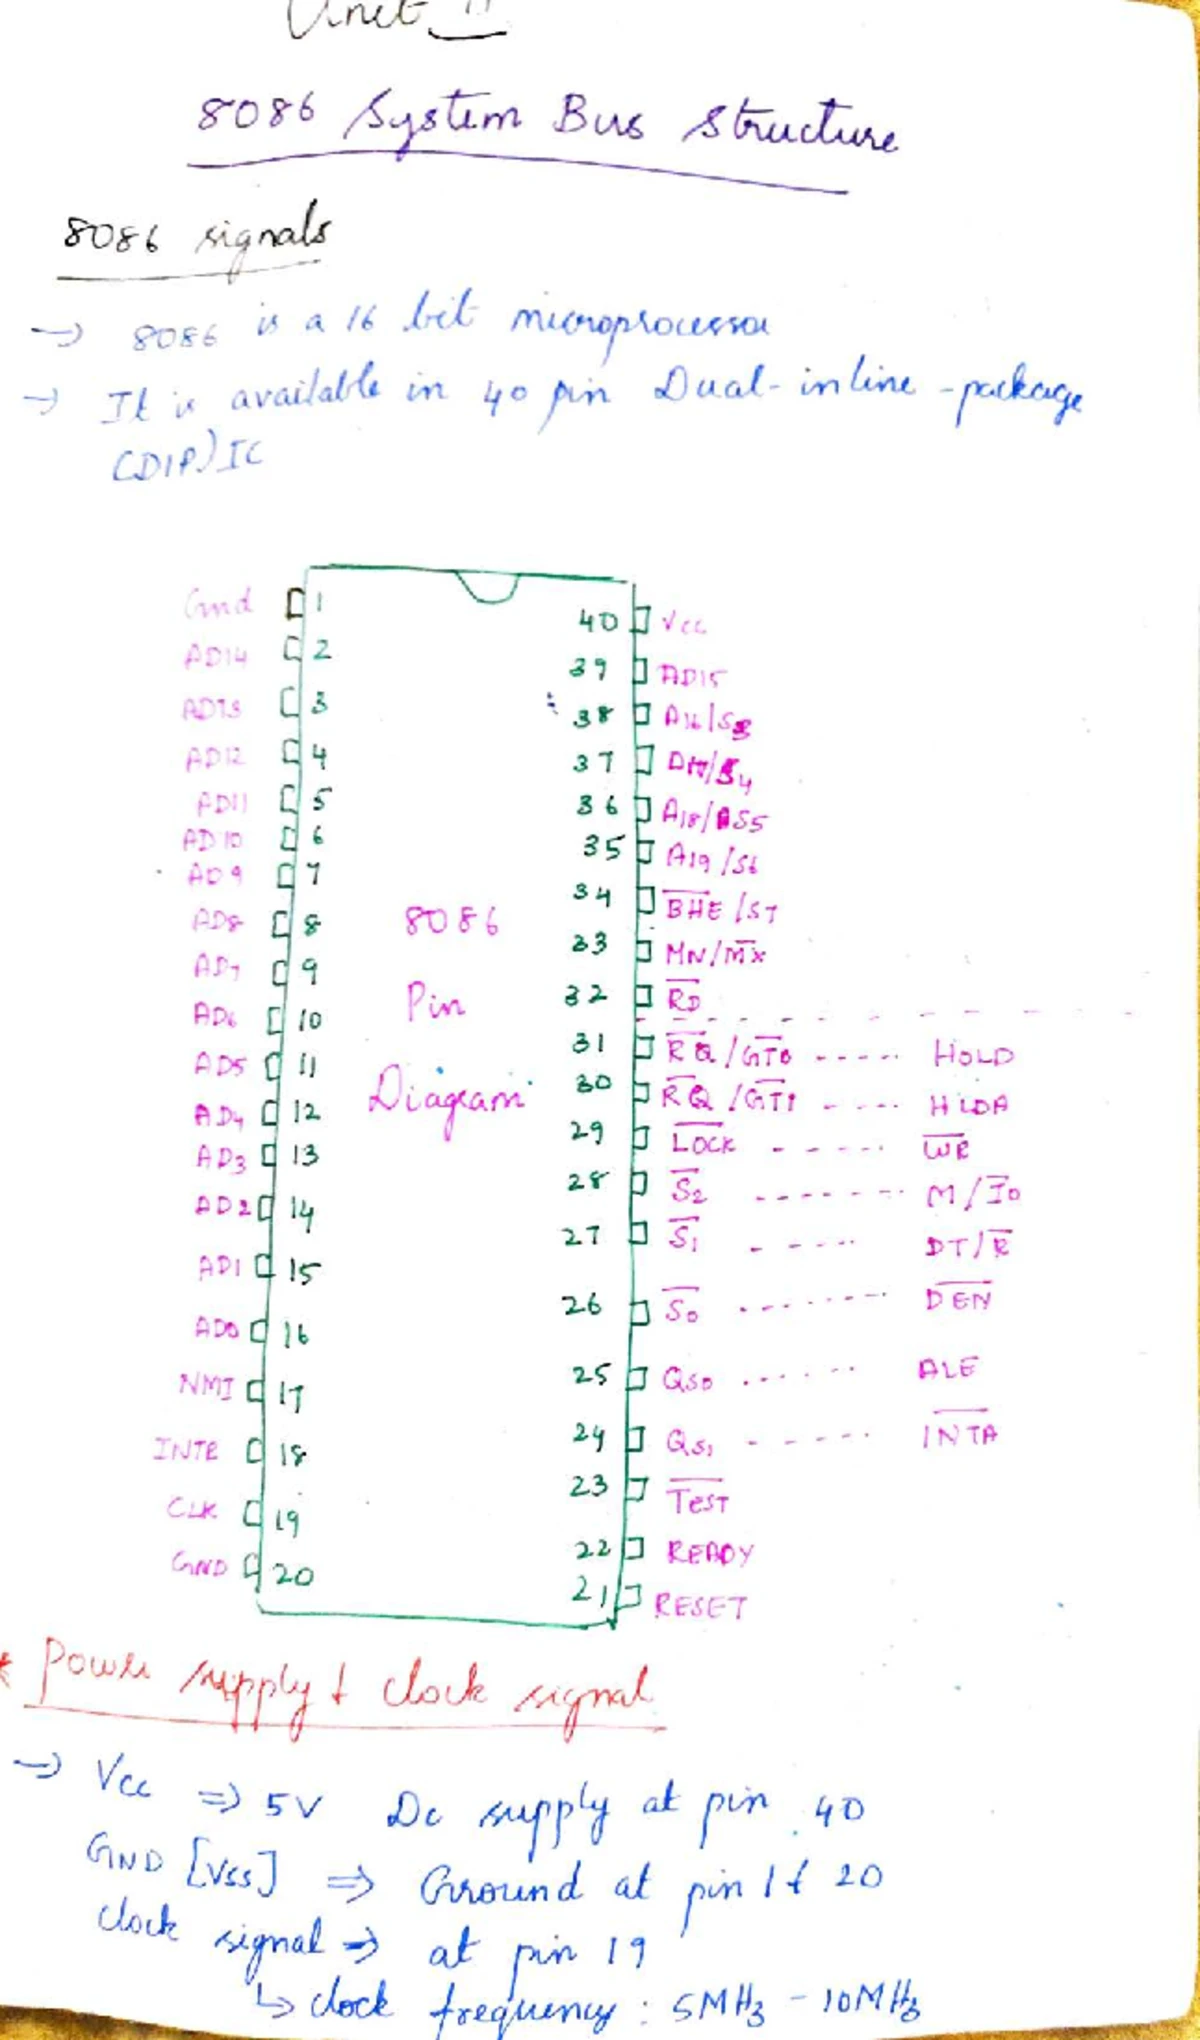 Unit II
8086 System Bus Structure
8086 signals
→ 8086 is a 16 bit microprocessor
→ It is available in 40 pin Dual-inline-package
(DIP) IC
Gnd 1
AD14 2
AD13 3
AD12 4
AD11 5
AD10 6
AD9 7
AD8 8
AD7 9
AD6 10
AD5 11
AD4 12
AD3 13
AD2 14
AD1 15
AD0 16
NMI 17
INTR 18
CLK 19
GND 20
8086
Pin
Diagram
40 Vcc
39 AD15
38 A16/S3
37 A17/S4
36 A18/S5
35 A19/S6
34 B̅H̅E̅/S7
33 MN/M̅X̅
32 R̅D̅
31 R̅Q̅/G̅T̅0 ----- HOLD
30 R̅Q̅/G̅T̅1 ---- HLDA
29 L̅O̅C̅K̅ ----- W̅R̅
28 S̅2 ------- M/I̅O̅
27 S̅1 ----- DT/R̅
26 S̅0 ------- D̅E̅N̅
25 QS0 ------ ALE
24 QS1 ------ I̅N̅T̅A̅
23 T̅e̅s̅t̅
22 READY
21 RESET
* Power supply & clock signal
→ Vcc ⇒ 5V Dc supply at pin 40
GND [VSS] ⇒ Ground at pin 1 & 20
clock signal ⇒ at pin 19
↳ clock frequency : 5MHz - 10MHz